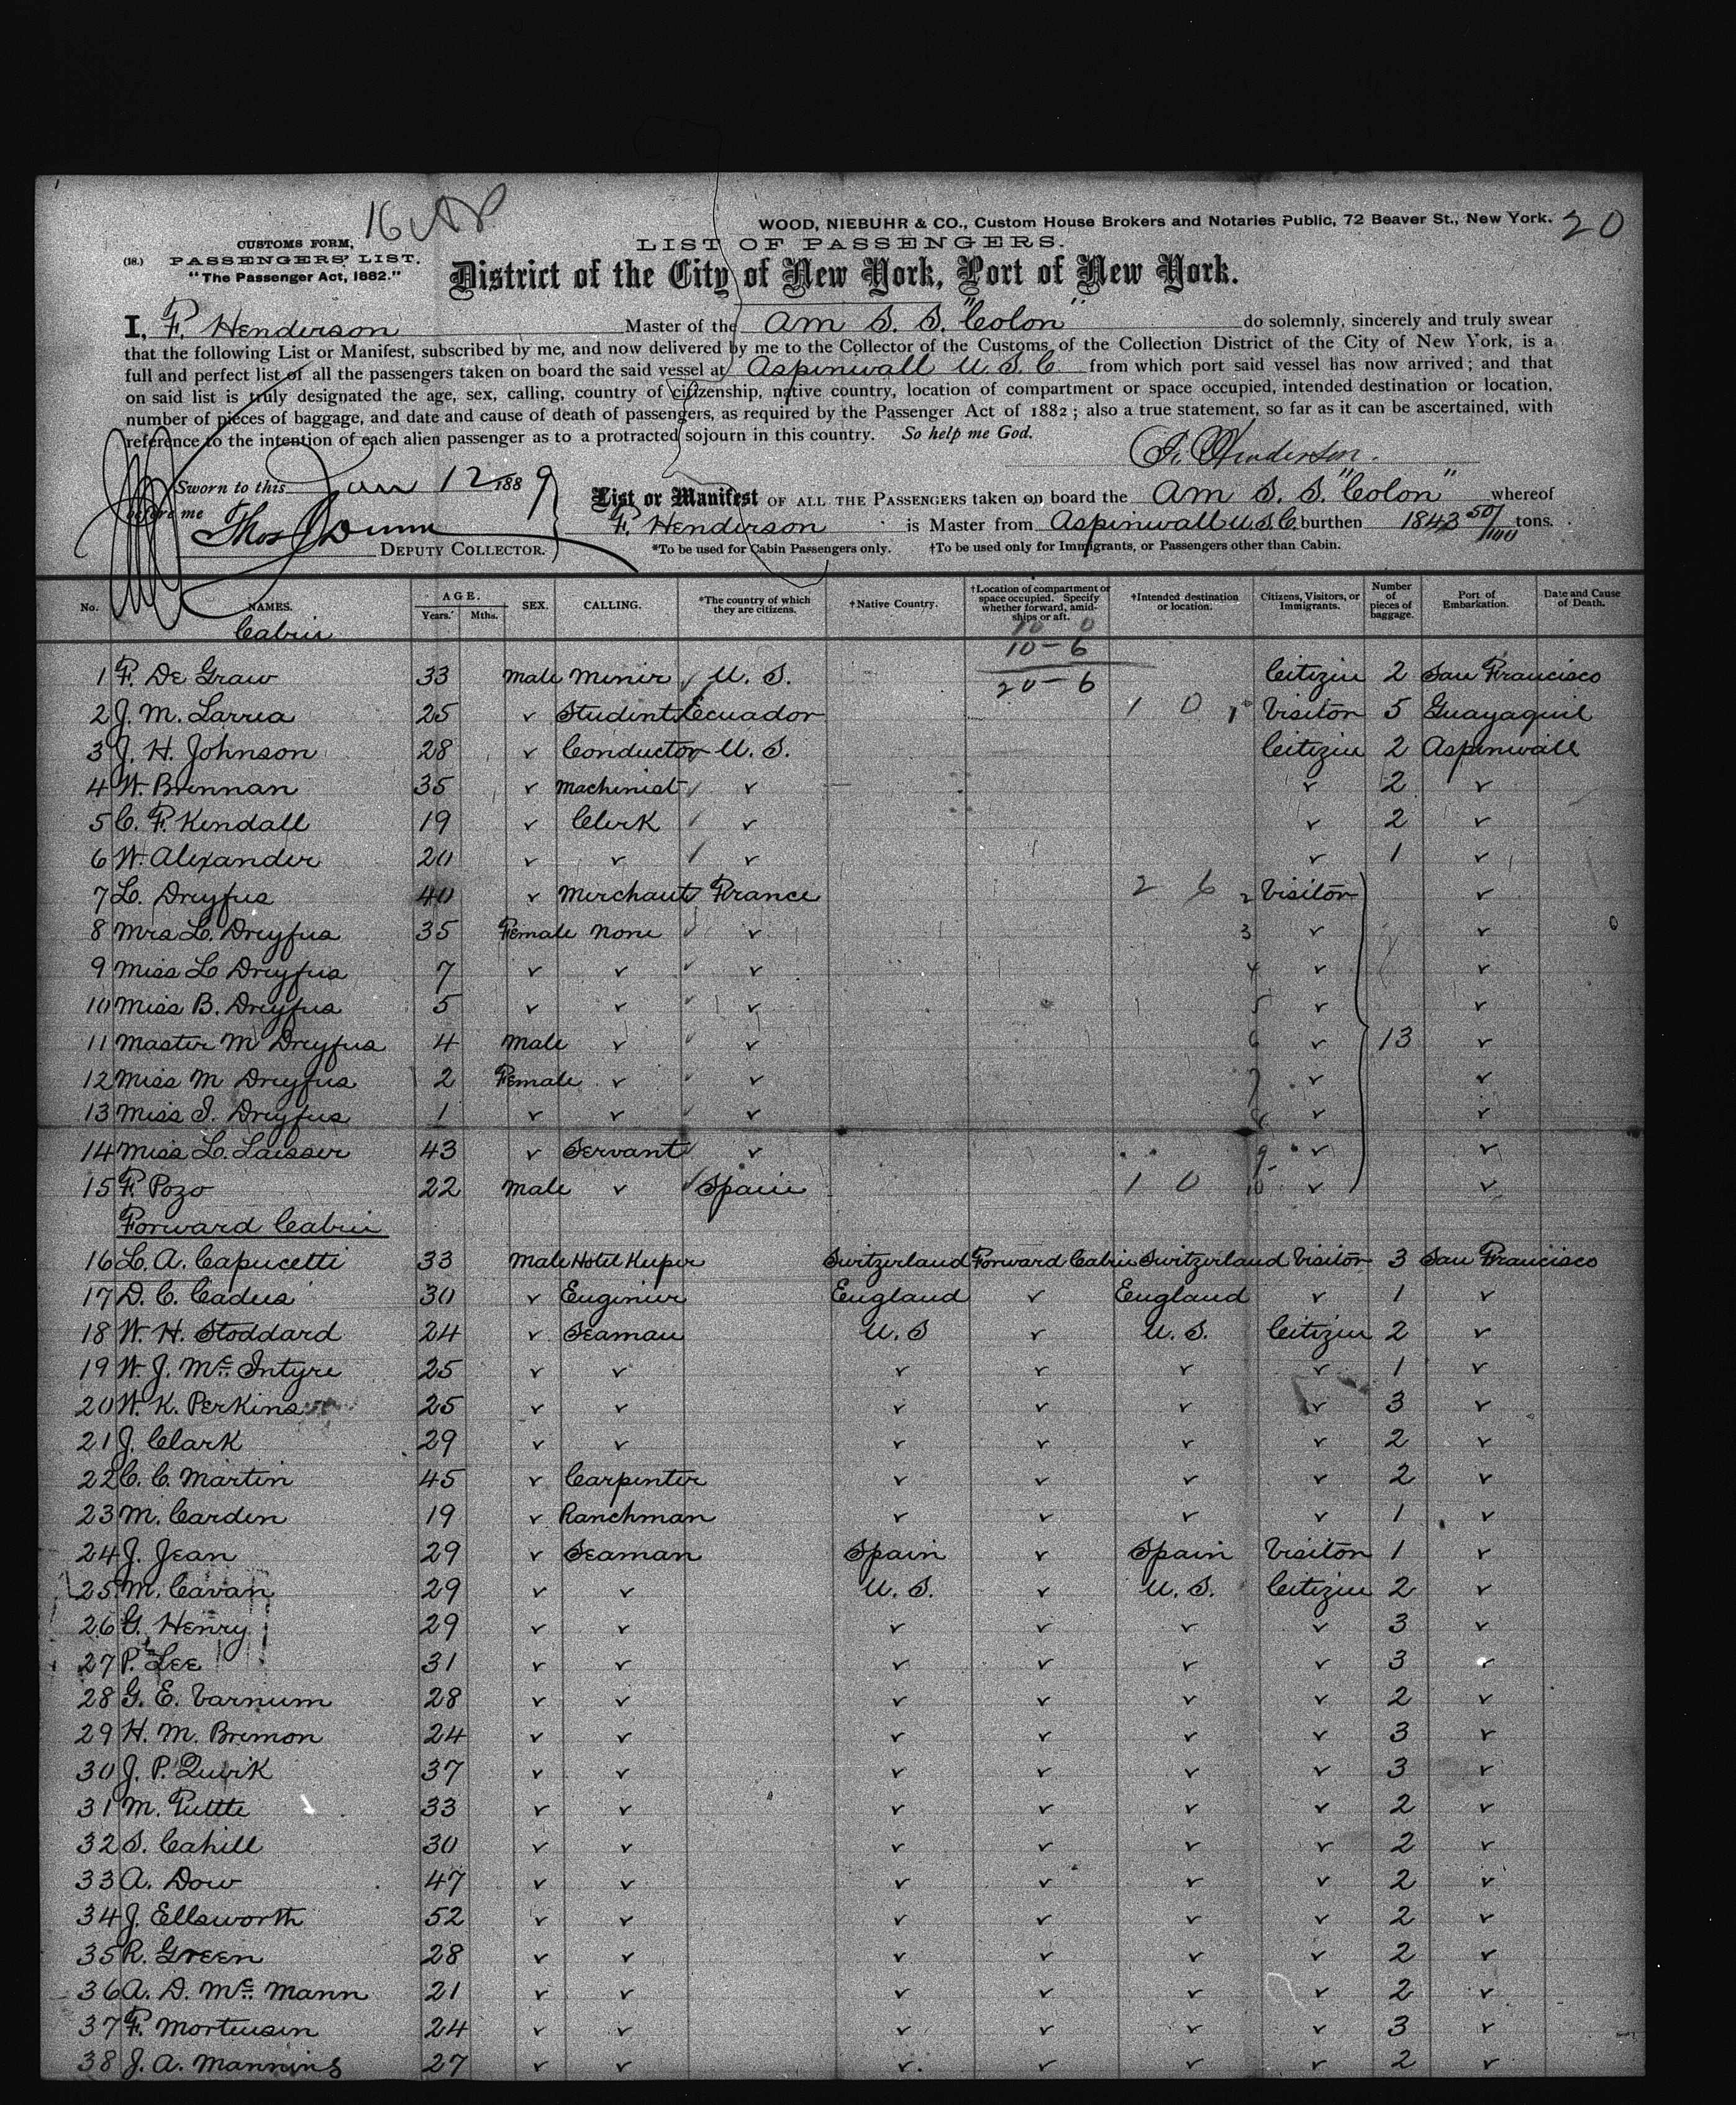 16
WOOD, NIEBUHR & CO., Custom House Brokers and Notaries Public, 72 Beaver St., New York. 20
CUSTOMS FORM,
(18.) PASSENGERS' LIST.
"The Passenger Act, 1882."
LIST OF PASSENGERS.
District of the City of New York, Port of New York.
I, F. Henderson Master of the Am S. S. "Colon" do solemnly, sincerely and truly swear
that the following List or Manifest, subscribed by me, and now delivered by me to the Collector of the Customs of the Collection District of the City of New York, is a
full and perfect list of all the passengers taken on board the said vessel at Aspinwall U. S. C from which port said vessel has now arrived; and that
on said list is truly designated the age, sex, calling, country of citizenship, native country, location of compartment or space occupied, intended destination or location,
number of pieces of baggage, and date and cause of death of passengers, as required by the Passenger Act of 1882; also a true statement, so far as it can be ascertained, with
reference to the intention of each alien passenger as to a protracted sojourn in this country. So help me God.
F. Henderson.
Sworn to this Jan 12 1889
before me
Thos J Dunn
DEPUTY COLLECTOR.
List or Manifest OF ALL THE PASSENGERS taken on board the Am S. S. "Colon" whereof
F. Henderson is Master from Aspinwall U.S.C. burthen 1843 50/100 tons.
*To be used for Cabin Passengers only. †To be used only for Immigrants, or Passengers other than Cabin.
No. NAMES. AGE. Years. Mths. SEX. CALLING. *The country of which they are citizens. †Native Country. †Location of compartment or space occupied. Specify whether forward, amidships or aft. †Intended destination or location. Citizens, Visitors, or Immigrants. Number of pieces of baggage. Port of Embarkation. Date and Cause of Death.
Cabin
10 0
10 - 6
20 - 6
1 F. De Graw 33 Male Miner ✓ U. S. Citizen 2 San Francisco
2 J. M. Larrea 25 ✓ Student Ecuador 1 0 1 Visitor 5 Guayaquil
3 J. H. Johnson 28 ✓ Conductor U. S. Citizen 2 Aspinwall
4 W. Brennan 35 ✓ Machinist ✓ ✓ ✓ 2 ✓
5 C. F. Kendall 19 ✓ Clerk ✓ ✓ ✓ 2 ✓
6 W. Alexander 20 ✓ ✓ ✓ ✓ ✓ 1 ✓
7 L. Dreyfus 40 ✓ Merchant ✓ France 2 6 2 Visitor ✓
8 Mrs L. Dreyfus 35 Female None ✓ ✓ 3 ✓ ✓
9 Miss L Dreyfus 7 ✓ ✓ ✓ ✓ 4 ✓ ✓
10 Miss B. Dreyfus 5 ✓ ✓ ✓ ✓ 5 ✓ ✓
11 Master M Dreyfus 4 Male ✓ ✓ ✓ 6 ✓ 13 ✓
12 Miss M Dreyfus 2 Female ✓ ✓ ✓ 7 ✓ ✓
13 Miss I. Dreyfus 1 ✓ ✓ ✓ ✓ 8 ✓ ✓
14 Miss L. Laisser 43 ✓ Servant ✓ ✓ 9 ✓ ✓
15 F. Pozo 22 Male ✓ ✓ Spain 1 0 10 ✓ ✓
Forward Cabin
16 L. A. Capucetti 33 Male Hotel Keeper Switzerland Forward Cabin Switzerland Visitor 3 San Francisco
17 D. C. Cadus 30 ✓ Engineer England ✓ England ✓ 1 ✓
18 W. H. Stoddard 24 ✓ Seaman U. S ✓ U. S. Citizen 2 ✓
19 W. J. Mc Intyre 25 ✓ ✓ ✓ ✓ ✓ ✓ 1 ✓
20 W. K. Perkins 25 ✓ ✓ ✓ ✓ ✓ ✓ 3 ✓
21 J. Clark 29 ✓ ✓ ✓ ✓ ✓ ✓ 2 ✓
22 C. C. Martin 45 ✓ Carpenter ✓ ✓ ✓ ✓ 2 ✓
23 M. Carden 19 ✓ Ranchman ✓ ✓ ✓ ✓ 1 ✓
24 J. Jean 29 ✓ Seaman Spain ✓ Spain Visitor 1 ✓
25 M. Cavan 29 ✓ ✓ U. S. ✓ U. S. Citizen 2 ✓
26 G. Henry 29 ✓ ✓ ✓ ✓ ✓ ✓ 3 ✓
27 P. Lee 31 ✓ ✓ ✓ ✓ ✓ ✓ 3 ✓
28 G. E. Varnum 28 ✓ ✓ ✓ ✓ ✓ ✓ 2 ✓
29 H. M. Bremon 24 ✓ ✓ ✓ ✓ ✓ ✓ 3 ✓
30 J. P. Quirk 37 ✓ ✓ ✓ ✓ ✓ ✓ 3 ✓
31 M. Tuttle 33 ✓ ✓ ✓ ✓ ✓ ✓ 2 ✓
32 S. Cahill 30 ✓ ✓ ✓ ✓ ✓ ✓ 2 ✓
33 A. Dow 47 ✓ ✓ ✓ ✓ ✓ ✓ 2 ✓
34 J. Ellsworth 52 ✓ ✓ ✓ ✓ ✓ ✓ 2 ✓
35 R. Green 28 ✓ ✓ ✓ ✓ ✓ ✓ 2 ✓
36 A. D. Mc Mann 21 ✓ ✓ ✓ ✓ ✓ ✓ 2 ✓
37 F. Mortensen 24 ✓ ✓ ✓ ✓ ✓ ✓ 3 ✓
38 J. A. Manning 27 ✓ ✓ ✓ ✓ ✓ ✓ 2 ✓